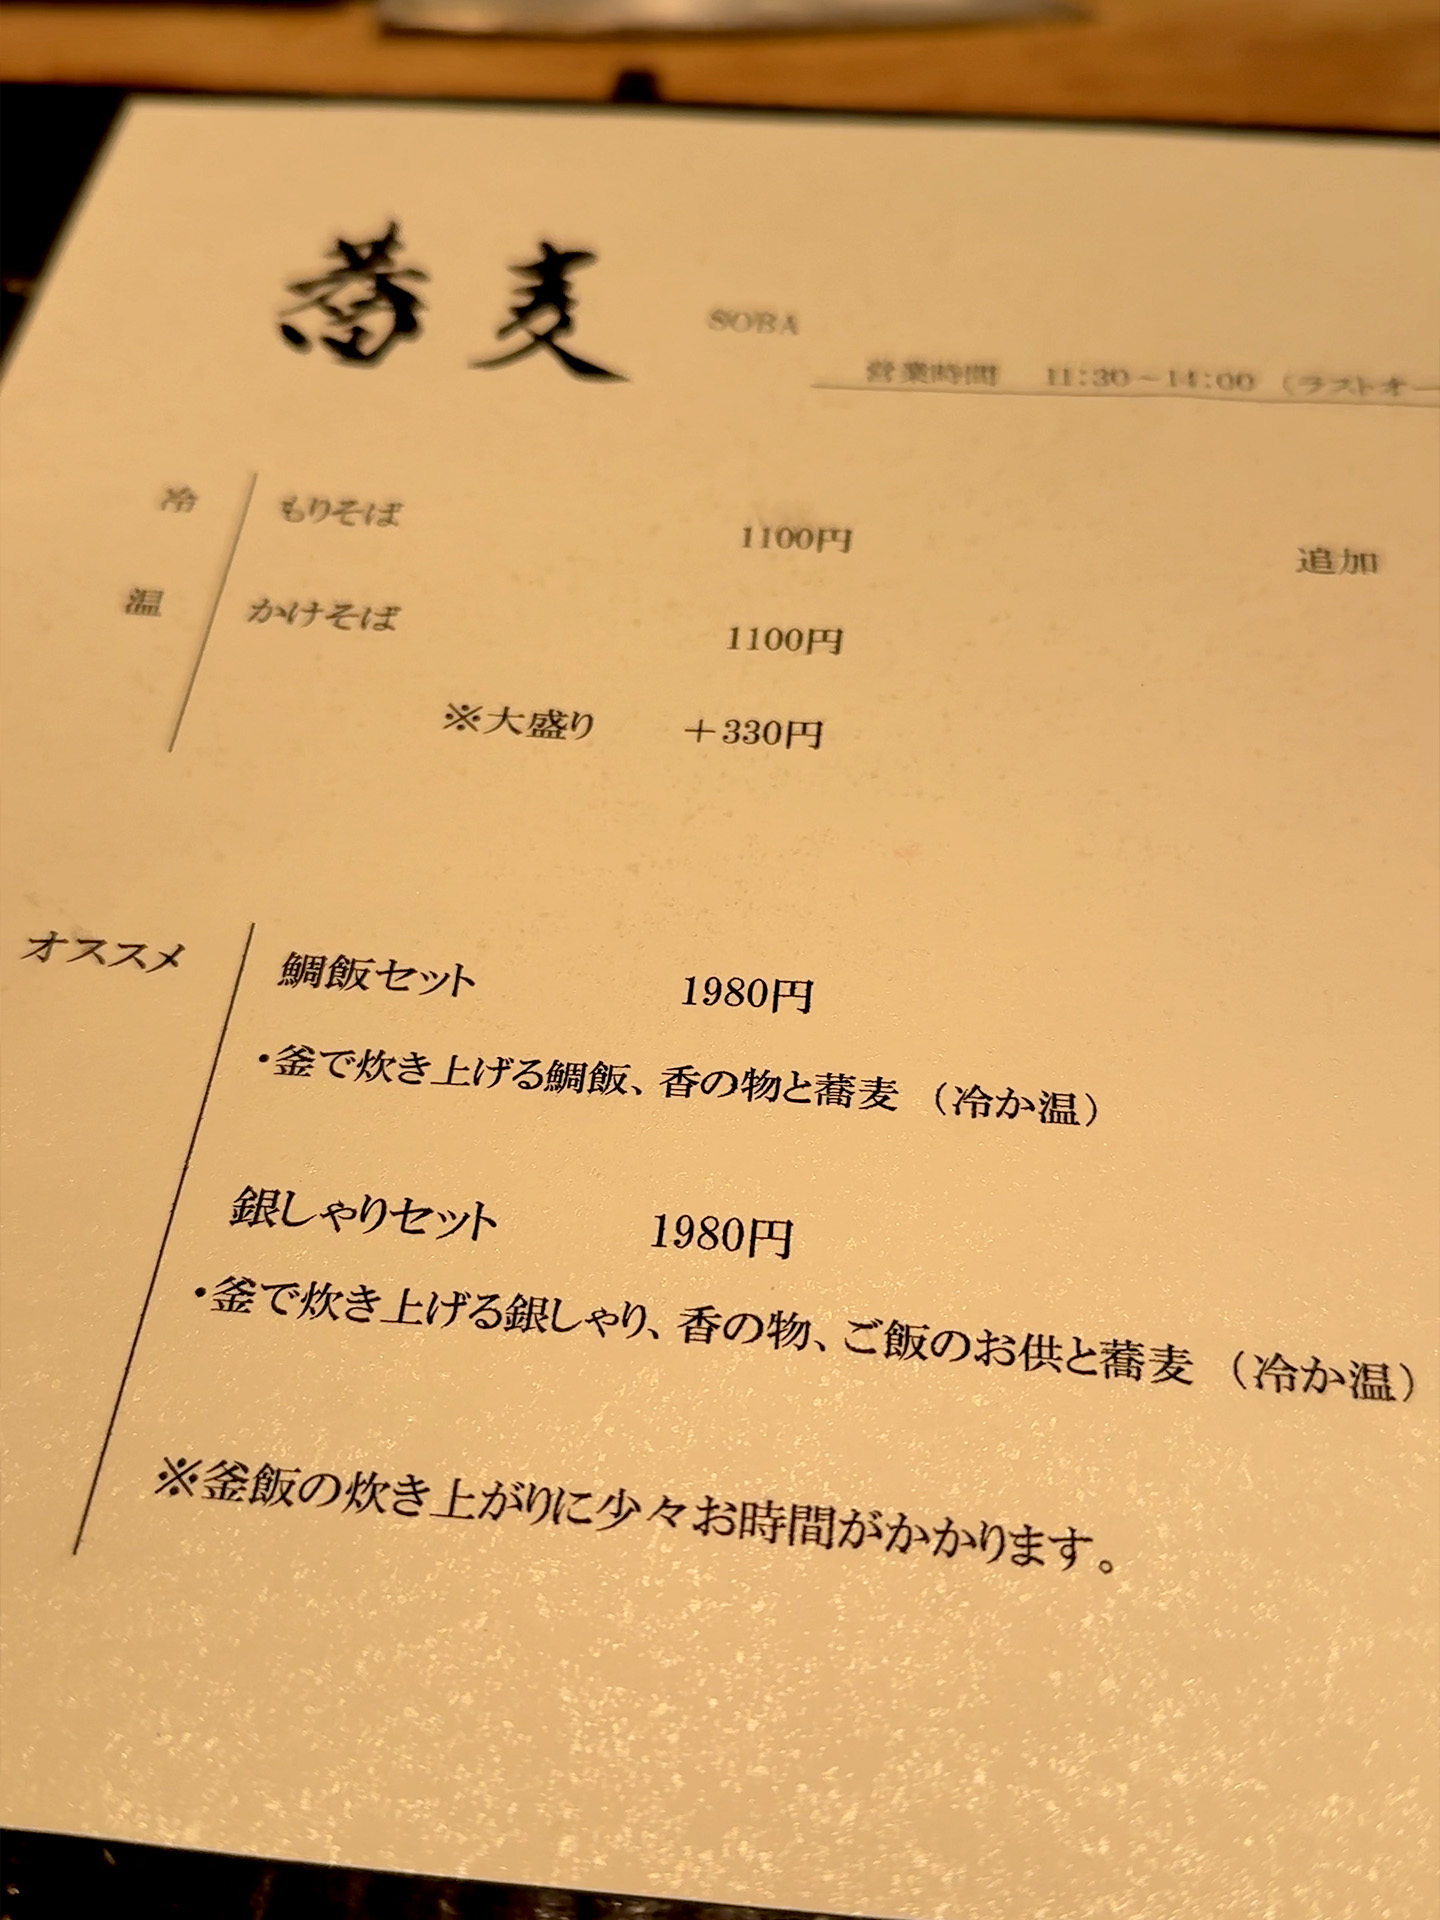 蕎麦 SOBA
営業時間 11:30-14:00 (ラストオー
冷 もりそば 1100円 追加
温 かけそば 1100円
※大盛り +330円
オススメ 鯛飯セット 1980円
・釜で炊き上げる鯛飯、香の物と蕎麦 (冷か温)
銀しゃりセット 1980円
・釜で炊き上げる銀しゃり、香の物、ご飯のお供と蕎麦 (冷か温)
※釜飯の炊き上がりに少々お時間がかかります。